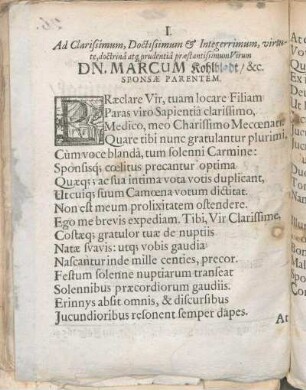 I.
Ad Clarissimum, Doctissimum & Integerrimum, virtu-
te, doctrinâ atq; prudentiâ præstantissimum Virum
DN. MARCUM Kohlblatt / &c.
SPONSÆ PARENTEM.
PRæclare Vir, tuam locare Filiam
Paras viro Sapientiâ clarissimo,
Medico, meo Charissimo Mecœnati.
Quare tibi nunc gratulantur plurimi,
Cùm voce blandâ, tum solenni Carmine:
Sponsisq; cœlitus precantur optima
Quæq; ac sua intima vota votis duplicant,
Ut cuiq; suum Camœna votum dictitat.
Non est meum prolixitatem ostendere.
Ego me brevis expediam. Tibi, Vir Clarissime,
Costæq; gratulor tuæ de nuptiis
Natæ svavis: utq; vobis gaudia
Nascantur inde mille centies, precor.
Festum solenne nuptiarum transeat
Solennibus præcordiorum gaudiis.
Erinnys absit omnis, & discursibus
Jucundioribus resonent semper dapes.
At